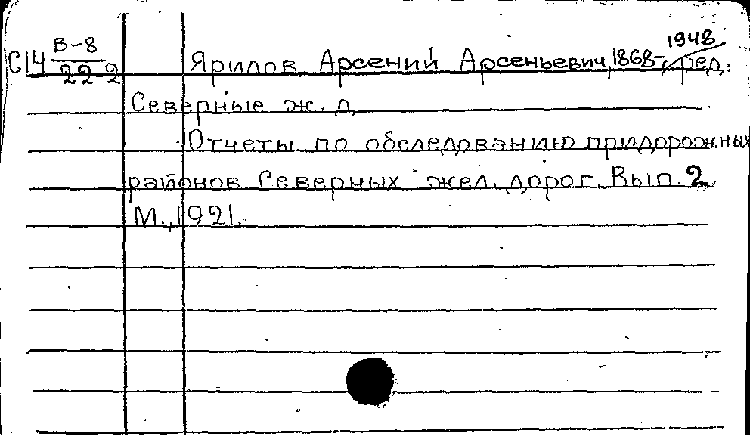 С14 В-8/22 2 Ярилов Арсений Арсеньевич, 1868-1948, ред.
Северные ж. д.
Отчеты по обследованию придорожных
районов Северных жел. дорог. Вып. 2
М., 1921.